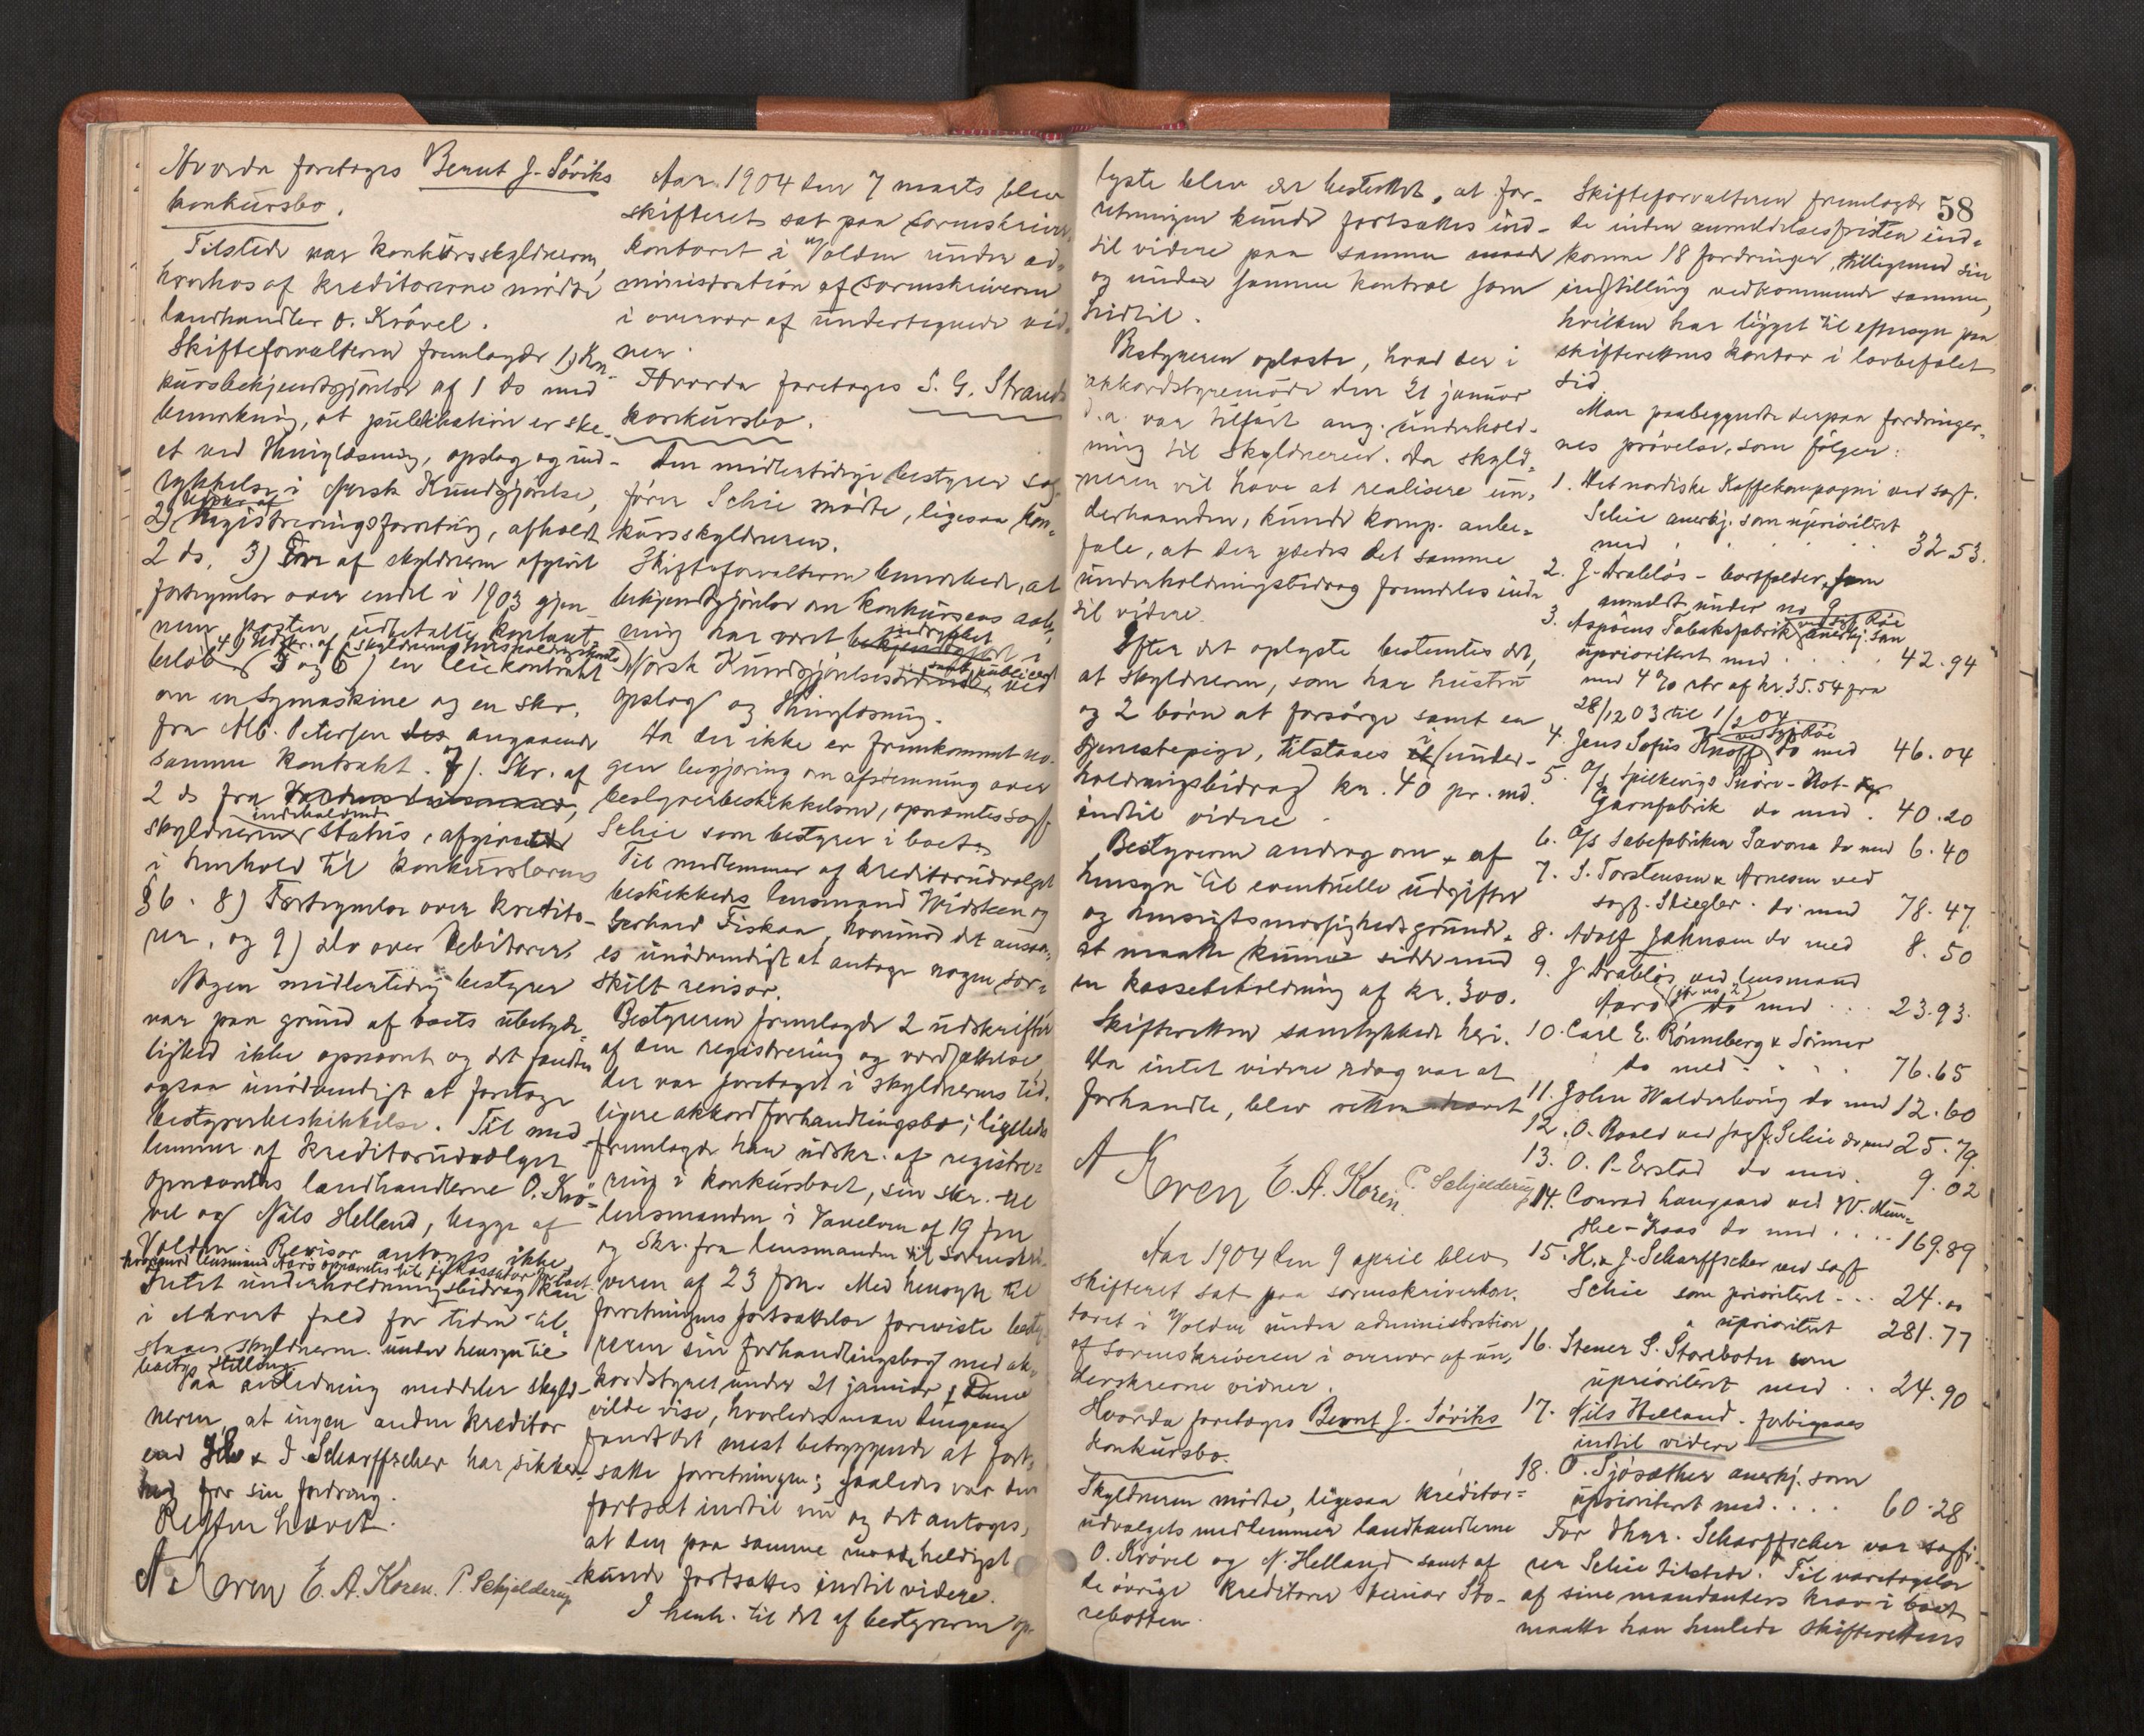 Hvorda foretoges Bernt J. Søviks
konkursbo.
Tilstede var konkursskyldneren,
hvorhos af kreditorerne mødte
landhandler O. Krøvel.
Skifteforvalteren fremlagde 1) Kon-
kursbekjendtgjørelse af 1 ds med
bemærkning, at publikation er ske-
et ved thinglæsning, opslag og ind-
rykkelse i Norsk Kundgjørelse,
2) Udskr. af Registreringsforretning, afholdt
2 ds, 3) En af skyldneren afgivet
fortegnelse over endel i 1903 gjen-
nem posten udbetalte kontant
beløb 4) Udskr. af skyldnerens husholdningskonto
5 og 6) en leiekontrakt
om en symaskine og en skr.
fra Alb. Petersen des angaaende
samme kontrakt. og 7). Skr. af
2 ds fra
skyldneren indeholdende status, afgivet
i henhold til konkurslovens
§ 6. 8) Fortegnelse over kredito-
rer, og 9) do over debitorer.
Nogen midlertidig bestyrer
var paa grund af boets ubetyde-
lighed ikke opnævnt og det fandtes
ogsaa unødvendigt at foretage
bestyrerbeskikkelse. Til med-
lemmer af kreditorudvalget
opnævntes landhandlerne O. Krø-
vel og Nils Helland, begge af
Volden. Revisor antoges ikke
hvorimod lensmand Aarø opnævntes til kassator for boet
Intet underholdningsbidrag kan
i ethvert fald for tiden til-
staaes skyldneren under hensyn til
boets stilling
Paa anledning meddeler skyld-
neren at ingen anden kreditor
end H & J Scharffscher har sikker-
hed for sin fordring.
Retten hævet.
A Koren E. A. Koren. P. Schjelderup
Aar 1904 den 7 marts blev
skifteret sat paa sorenskriver-
kontoret i Volden under ad-
ministration af sorenskriveren
i overvær af undertegnede vid-
ner.
Hvorda foretoges S. G. Strands
konkursbo.
Den midlertidige bestyrer sag-
fører Schie mødte, ligesaa kon-
kursskyldneren.
Skifteforvalteren bemerkede, at
bekjendtgjørelse om konkursens aab-
ning har været indrykket bekjendtgjort i
Norsk Kundgjørelsestidende, samt publiceret ved
opslag og thinglæsning.
Da der ikke er fremkommet no-
gen begjæring om afstemning over
bestyrerbeskikkelsen, opnævntes sagf
Schie som bestyrer i boet.
Til medlemmer af kreditorudvalget
beskikkedes lensmand Widsteen og
Gerhard Fiskaa, hvorimod det ansaa-
es unødvendigt at antage nogen sær-
skilt revisor.
Bestyreren fremlagde 2 udskrifter
af den registrering og værdsættelse
der var foretaget i skyldnerens tid-
ligere akkordforhandlingsbo; ligeledes
fremlagde han udskr. af registre-
ring i konkursboet, sin skr. til
lensmanden i Vanelven af 19 fm
og skr. fra lensmanden til sorenskri-
veren af 23 fm. Med hensyn til
forretningens fortsættelse foreviste besty-
reren sin forhandlingsbog med ak-
kordstyret under 21 januar. Denne
vilde vise, hvorledes man dengang
fandt det mest betryggende at fort-
sætte forretningen; saaledes var den
fortsat indtil nu og det antoges,
at den paa samme maade heldigst
kunde fortsættes indtil videre.
I henh. til det af bestyreren op-
lyste blev det besluttet, at for-
retningen kunde fortsættes ind-
til videre paa samme maade
og under samme kontrol som
hidtil.
Bestyreren oplæste, hvad der i
akkordstyremøde den 21 januar
d.a. var tilført ang. underhold-
ning til skyldneren. Da skyld-
neren vil have at realisere un-
derhaanden, kunde komp. anbe-
fale, at der ydedes det samme
underholdningsbidrag fremdeles ind-
til videre.
Efter det oplyste bestemtes det,
at skyldneren, som har hustru
og 2 børn at forsørge samt en
tjenestepige, tilstaaes i under-
holdningsbidrag kr. 40 pr. md.
indtil videre.
Bestyreren androg om, af
hensyn til eventuelle udgifter
og hensigtsmæssighedsgrunde,
at maatte kunne sidde med
en kassebeholdning af kr. 300.
Skifteretten samtykkede heri.
Da intet videre idag var at
forhandle, blev retten hævet
A Koren E. A. Koren. P. Schjelderup
Aar 1904 den 9 april blev
skifteret sat paa sorenskriverkon-
toret i Volden under administration
af sorenskriveren i overvær af un-
derskrevne vidner.
Hvorda foretoges Bernt J. Søviks
konkursbo.
Skyldneren mødte, ligesaa kreditor-
udvalgets medlemmer landhandlerne
O. Krøvel og N. Helland samt af
de øvrige kreditorer Steinar Sto-
rebotten.
58
Skifteforvalteren fremlagde
de inden anmeldelsesfristen ind-
komne 18 fordringer, tilligemed sin
indstilling vedkommende samme,
hvilken har ligget til eftersyn paa
skifterettens kontor i lovbefalet
tid.
Man paabegyndte derpaa fordringer-
nes prøvelse, som følger:
1. Det nordiske Kaffekompagni ved sagf.
Schie anerkj. som uprioritert
med . . . . 32.53.
2. J. Drabløs - bortfalder, som
anmeldt under no 9
3. Aspøens Tabaksfabrik ved sagf Røe anerkj. som
uprioriteret med . . . . 42.94
med 4 % rtr af kr. 35.54 fra
28/12 03 til 1/2 04
4. Jens Sofus Knoff ved sagf Røe do med 46.04
5. A/S Spilkevigs Snøre- Not- og
Garnfabrik do med . 40.20
6. A/S Sæbefabriken Savona do med 6.40
7. S. Torstensen & Arnesen ved
sagf. Stiegler. do med 78.47.
8. Adolf Jahnsen do med 8.50
9. J. Drabløs ved lensmand
Aarø (jfr no 2) do med . . . 23.93.
10. Carl E. Rønneberg & Sønner
do med . . . . 76.65
11. John Walderhoug do med 12.60
12. O. Roald ved sagf. Schie do med 25.79.
13. O. P. Erstad do med . 9.02
14. Conrad Langaard ved W. Mün-
the-Kaas do med . . . . 169.89
15. H. & J. Scharffscher ved sagf
Schie som prioritert . . . 24.00
" uprioritert 281.77
16. Stener S. Storebotn som
uprioriteret med . . 24.90
17. Nils Helland. forbigaaes
indtil videre
18. O. Sjøsæther anerkj. som
uprioriteret med . . . . 60.28
For dhrr. Scharffscher var sagfø-
rer Schie tilstede. Til varetagelse
af sine mandanters krav i boet
maatte han henlede skifterettens